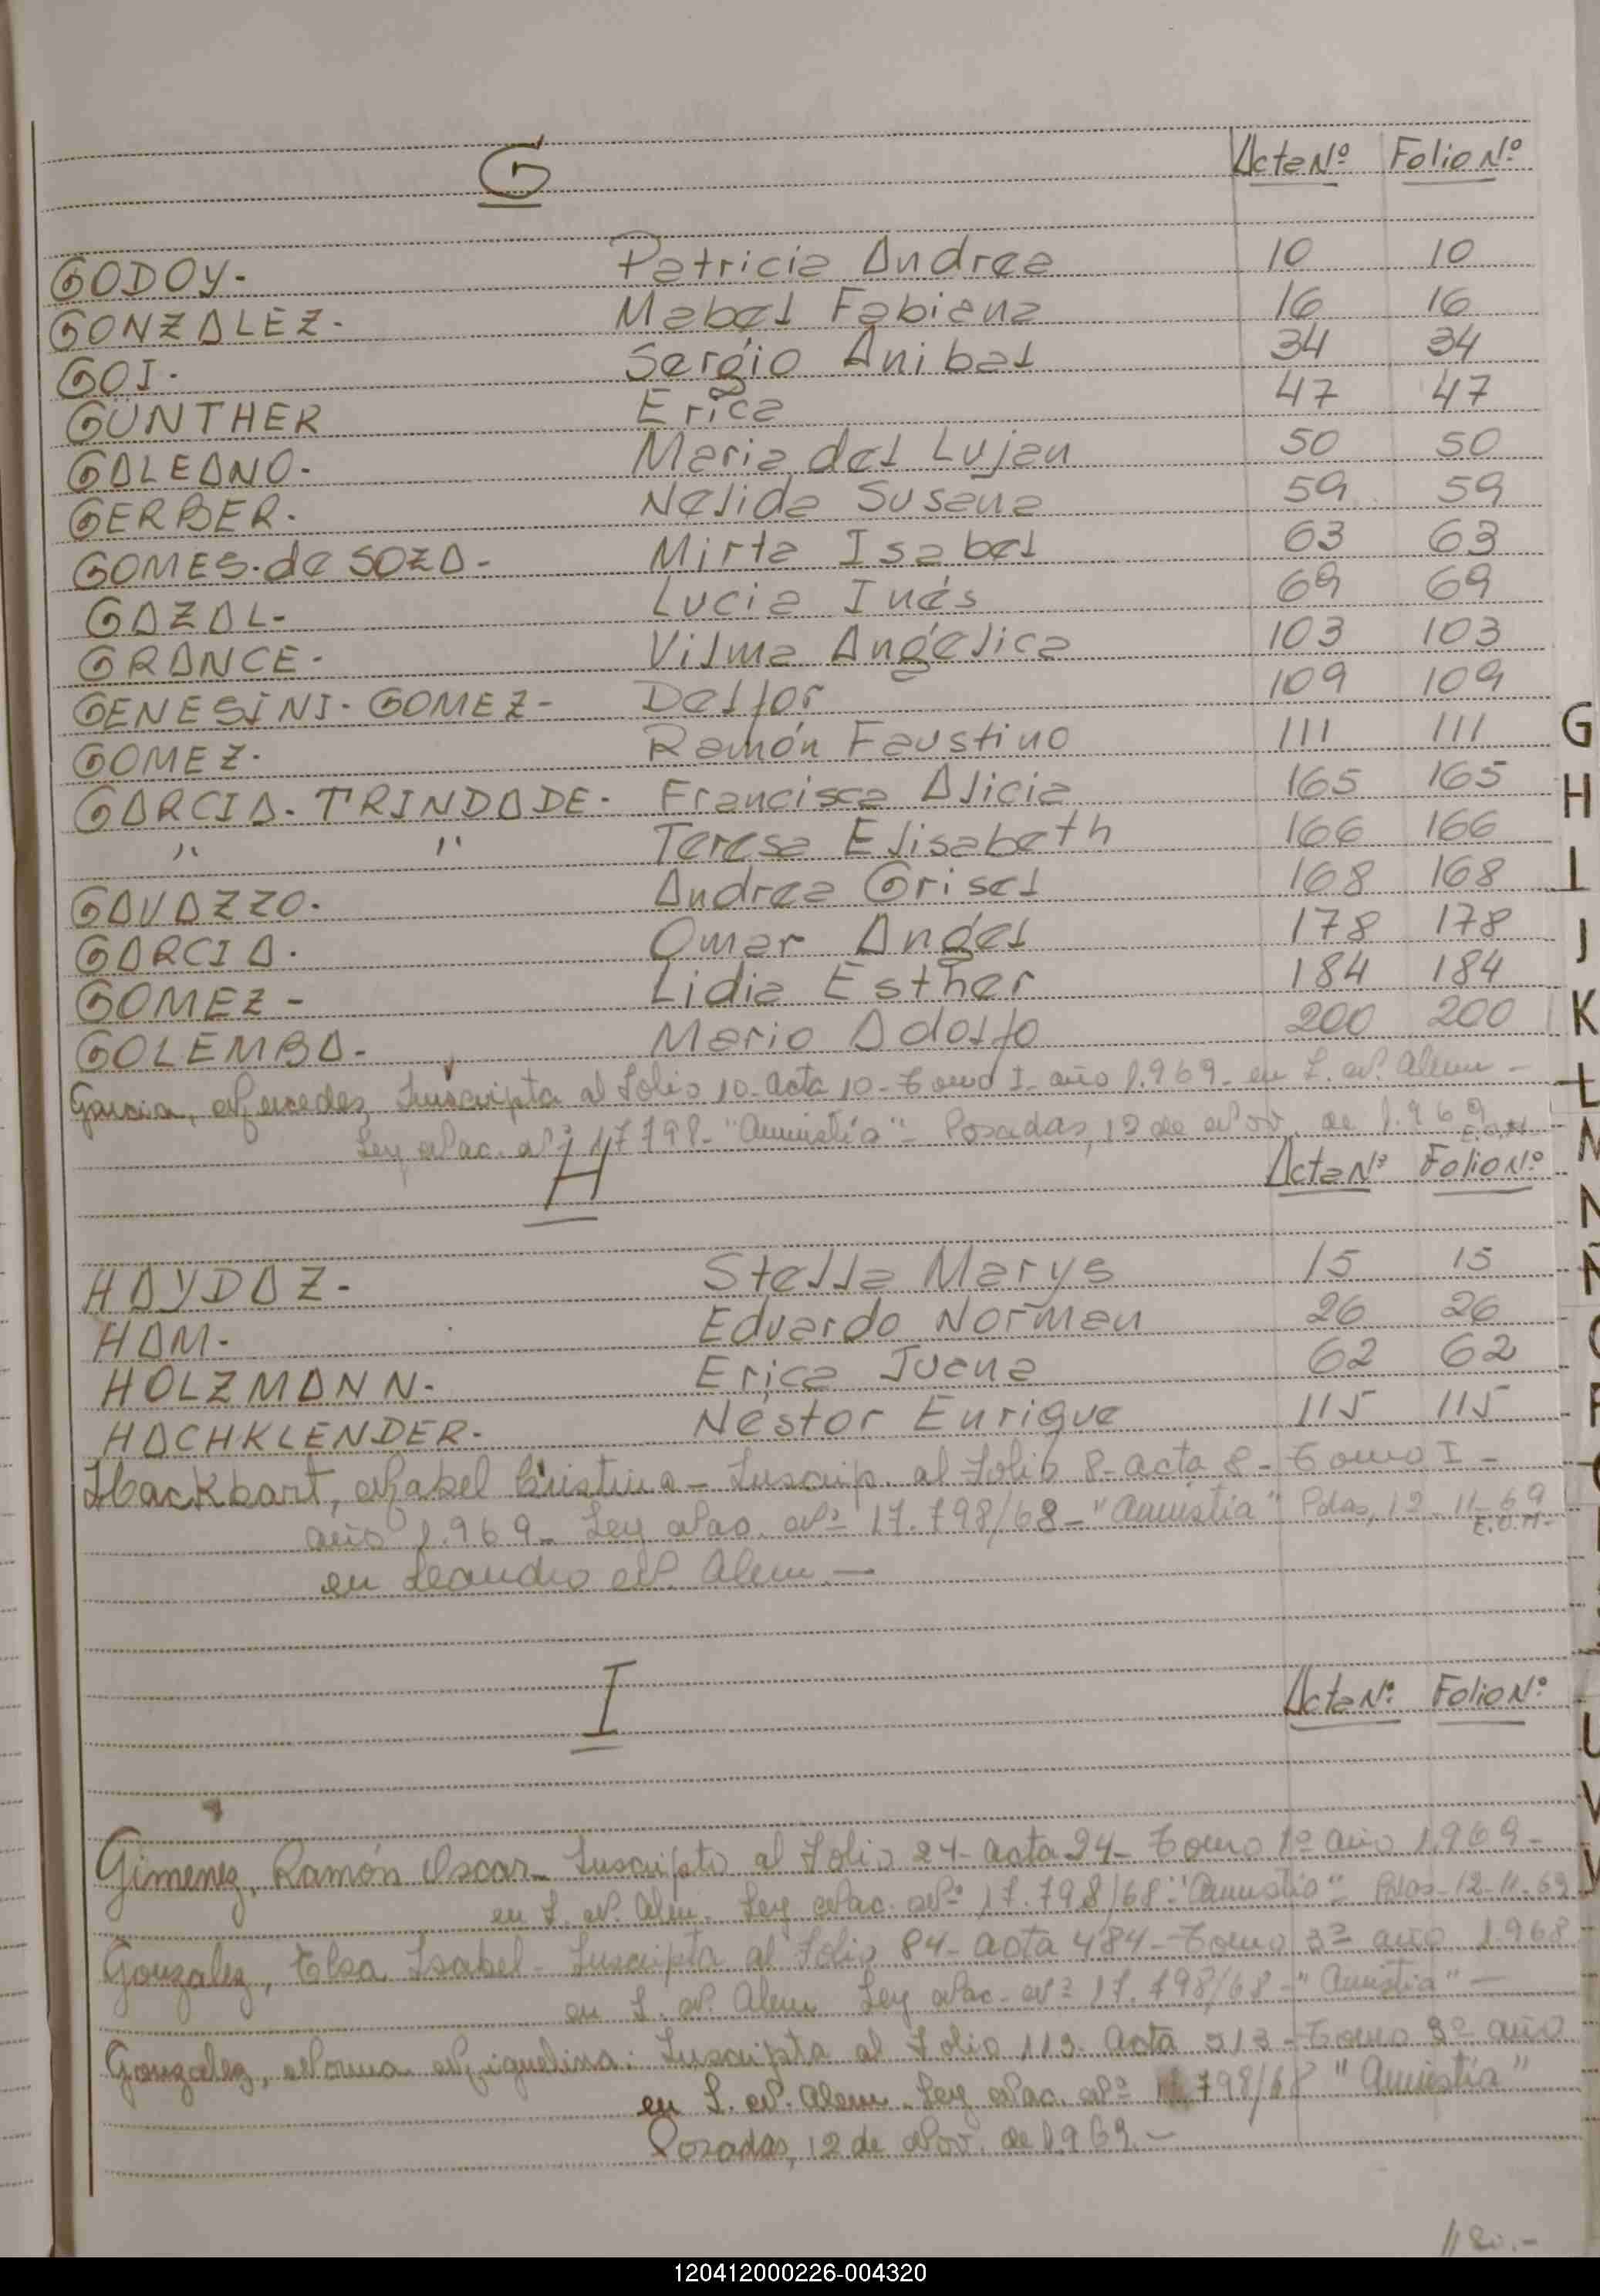 G Acta Nº Folio Nº
GODOY.- Patricia Andrea 10 10
GONZALEZ.- Mabel Fabiana 16 16
GOI.- Sergio Anibal 34 34
GÜNTHER Erica 47 47
GALEANO.- Maria del Lujan 50 50
GERBER.- Nelida Susana 59 59
GOMES.de SOZA.- Mirta Isabel 63 63
GAZAL.- Lucia Inés 69 69
GRANCE.- Vilma Angélica 103 103
GENESINI-GOMEZ- Delfor 109 109
GOMEZ.- Ramón Faustino 111 111
GARCIA-TRINDADE.- Francisca Alicia 165 165
" " Teresa Elisabeth 166 166
GAVAZZO.- Andrea Grisel 168 168
GARCIA.- Omar Angel 178 178
GOMEZ- Lidia Esther 184 184
GOLEMBA.- Mario Adolfo 200 200
Garcia, Mercedes Inscripta al Folio 10- Acta 10- Tomo I- año 1.969- en L. N. Alem-
Ley Nac. Nº 17798- "Amnistía"- Posadas, 12 de Nov. de 1.969
H Acta Nº Folio Nº
HAYDAZ.- Stella Marys 15 15
HAM.- Eduardo Norman 26 26
HOLZMANN.- Erica Juana 62 62
HACHKLENDER.- Néstor Enrique 115 115
Hackbart, Mabel Cristina- Inscrip. al Folio 8- acta 8- Tomo I-
año 1.969- Ley Nac. Nº 17.798/68- "Amnistia" Pdas, 12-11-69
en Leandro N. Alem.-
I Acta Nº Folio Nº
Gimenez, Ramón Oscar- Inscripto al Folio 24- acta 24- Tomo 1º año 1.969-
en L. N. Alem. Ley Nac. Nº 17.798/68- "Amnistia"- Pdas- 12-11-69
Gonzalez, Elsa Isabel- Inscripta al Folio 84- acta 484- Tomo 3º año 1.968
en L. N. Alem Ley Nac. Nº 17.798/68- "Amistia"-
Gonzalez, Norma Miguelina: Inscripta al Folio 113- Acta 513- Tomo 3º año
en L. N. Alem. Ley Nac. Nº 798/68 "Amnistía"
Posadas, 12 de Nov. de 1.969.-
G
H
I
J
K
L
M
N
Ñ
U
V
120412000226-004320